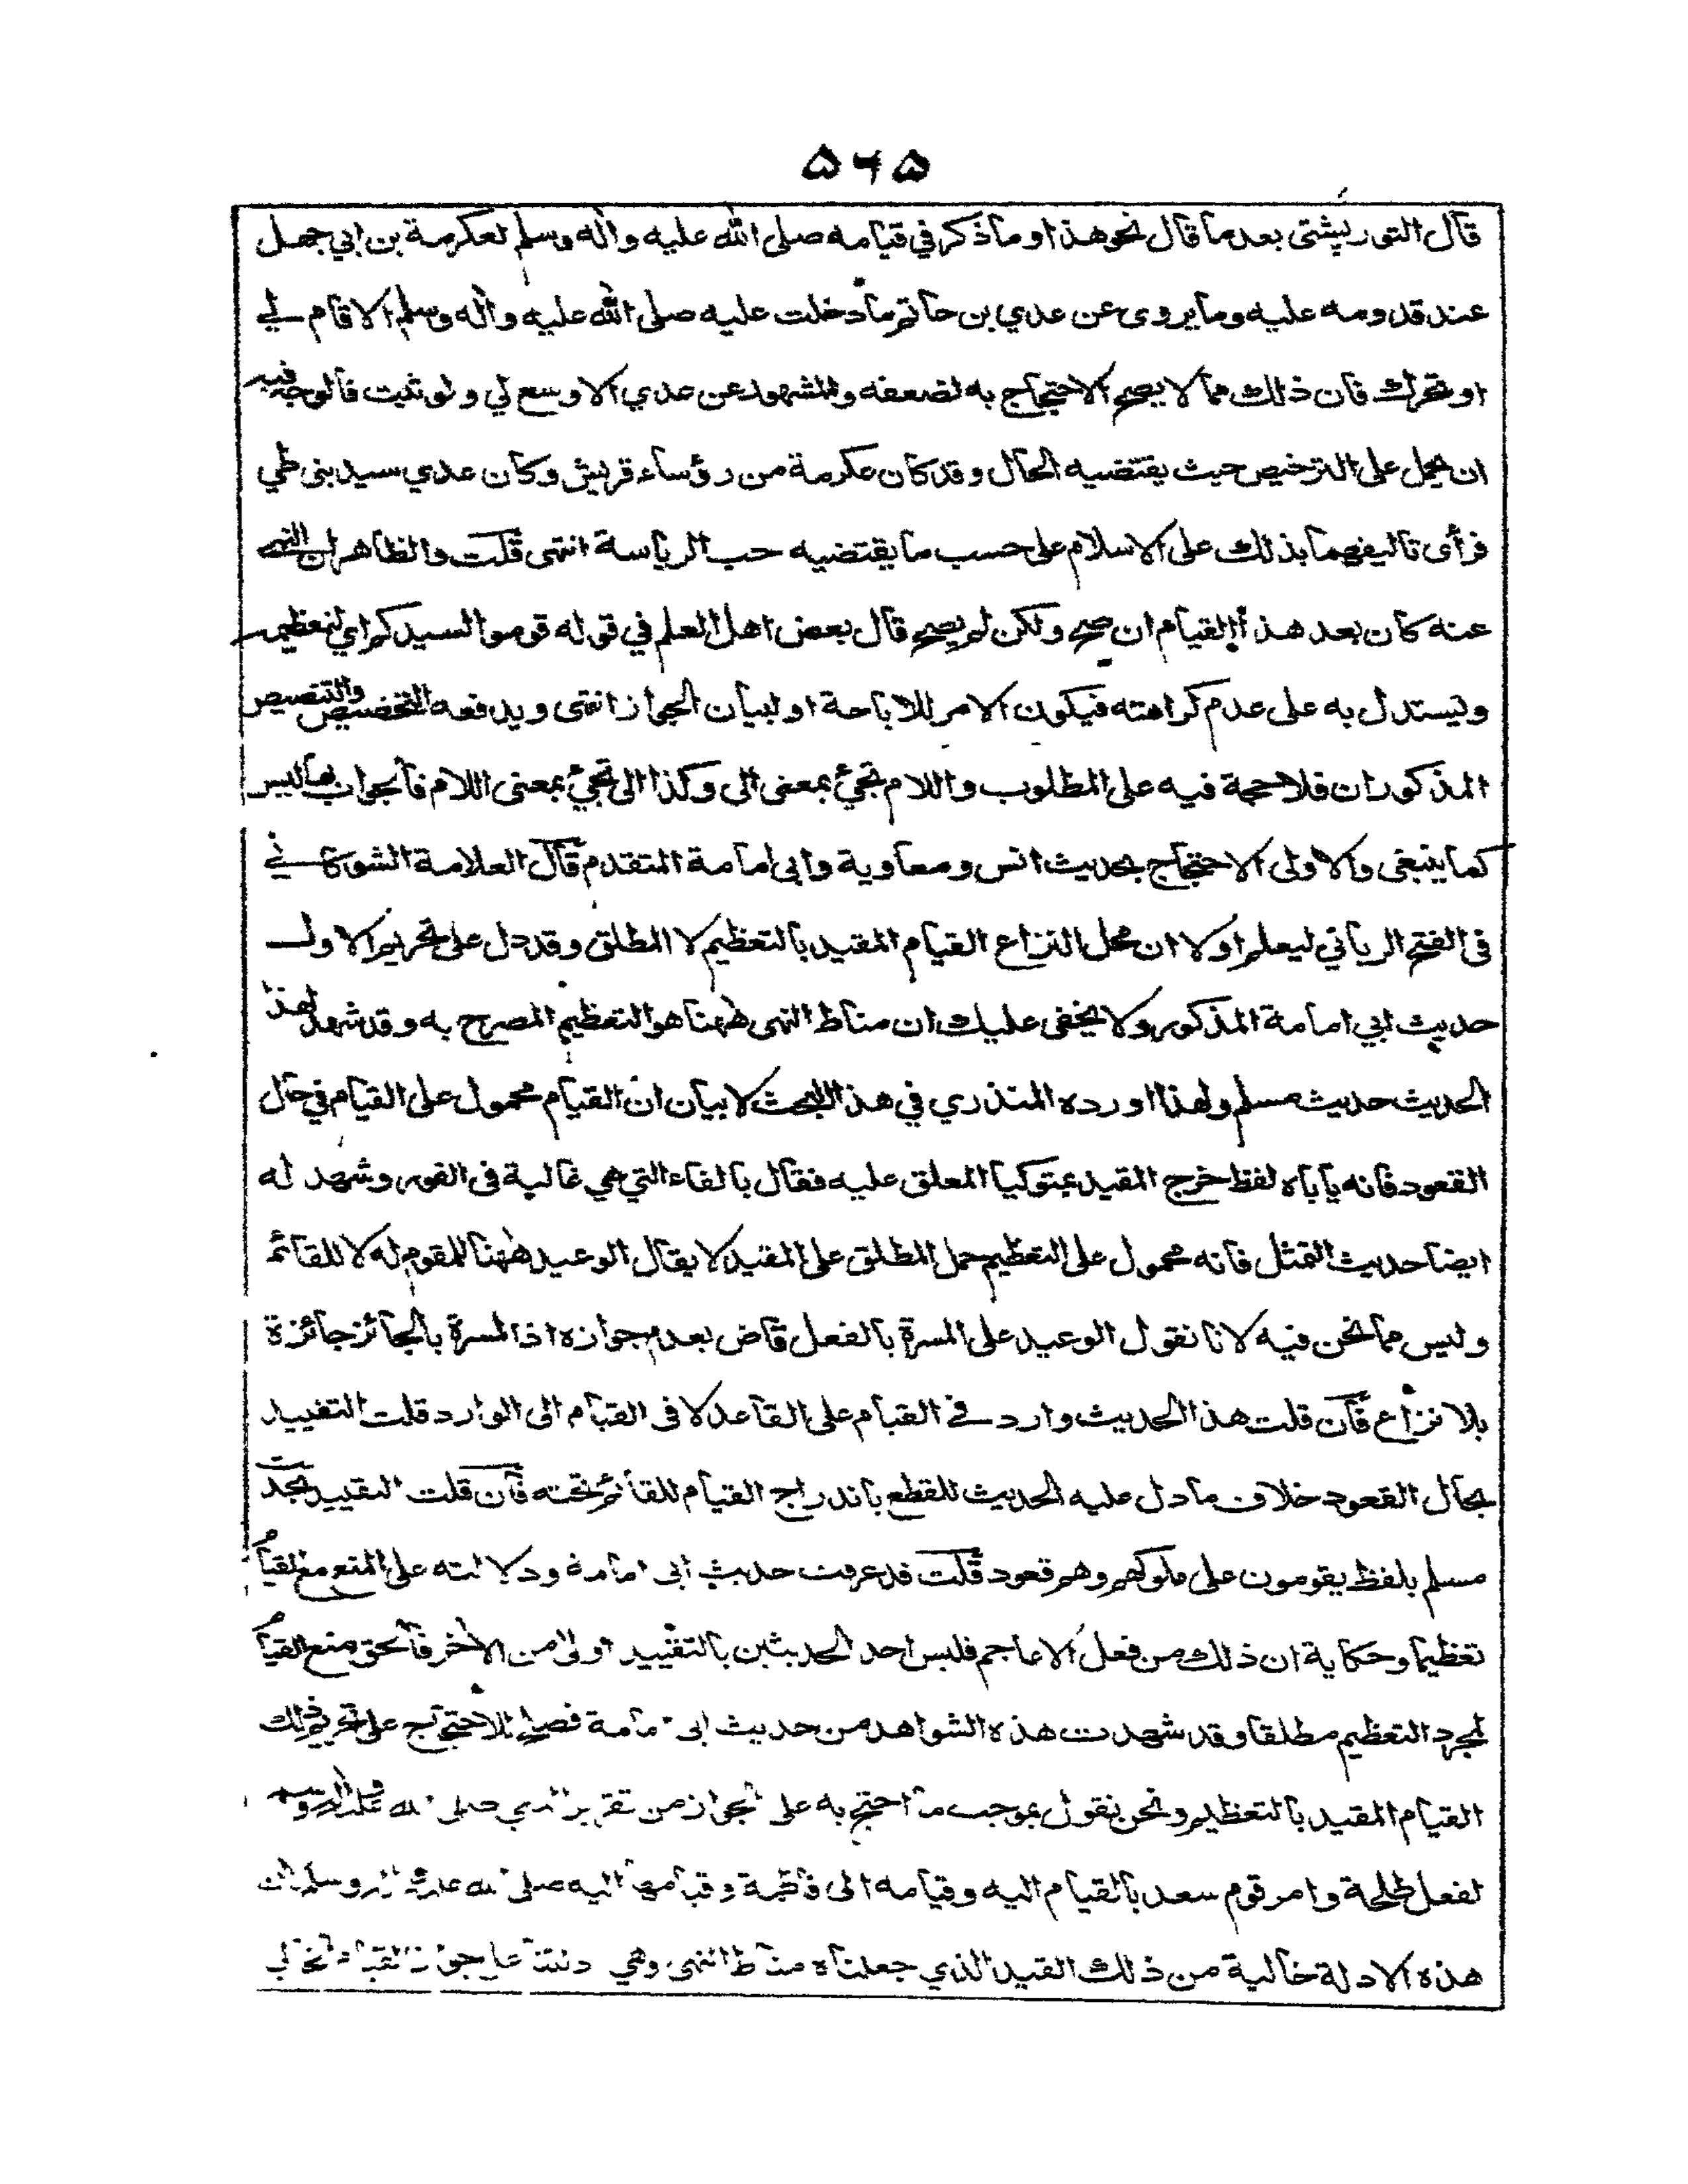 ۵۶۵
قال التوربشتى بعد ما قال نحو هذا وما ذكر في قيامه صلى الله عليه واله وسلم لعكرمة بن ابي جهل
عند قدومه عليه وما يروى عن عدي بن حاتم ما دخلت عليه صلى الله عليه واله وسلم الا قام لي
او تحرك فان ذلك مما لا يصح الاحتجاج به لضعفه والمشهور عن عدي الا وسع لي ولو ثبت فالوجه فيه
ان يحمل على الترخيص حيث يقتضيه الحال وقد كان عكرمة من رؤساء قريش وكان عدي سيد بنى طي
فرأى تاليفهما بذلك على الاسلام على حسب ما يقتضيه حب الرياسة انتهى قلت والظاهر ان النهي
عنه كان بعد هذا القيام ان صح ولكن لم يصح قال بعض اهل العلم في قوله قوموا لسيدكم اي لتعظيمه
ويستدل به على عدم كراهته فيكون الامر للاباحة او لبيان الجواز انتهى ويدفعه التخصيص والتنصيص
المذكوران فلا حجة فيه على المطلوب واللام تجئ بمعنى الى وكذا الى تجئ بمعنى اللام فالجواب بها ليس
كما ينبغى والاولى الاحتجاج بحديث انس ومعاوية وابى امامة المتقدم قال العلامة الشوكاني
فى الفتح الرباني ليعلم اولا ان محل النزاع القيام المقيد بالتعظيم لا المطلق وقد دل على تحريم الاول
حديث ابي امامة المذكور ولا يخفى عليك ان مناط النهى ههنا هو التعظيم المصرح به وقد شهد لهذا
الحديث حديث مسلم ولهذا اورده المنذري في هذا البحث لا بيان ان القيام محمول على القيام في حال
القعود فانه ياباه لفظ خرج المقيد بمتوكيا المعلق عليه فقال بالفاء التي هي غالبة فى الفور وشهد له
ايضا حديث التمثل فانه محمول على التعظيم حمل المطلق على المقيد لا يقال الوعيد ههنا للمقوم له لا للقائم
وليس مما نحن فيه لانا نقول الوعيد على المسرة بالفعل قاض بعدم جوازه اذ المسرة بالجائز جائزة
بلا نزاع فان قلت هذا الحديث وارد في القيام على القاعد لا فى القيام الى الوارد قلت التقييد
بحال القعود خلاف ما دل عليه الحديث للقطع باندراج القيام للقائم تحته فان قلت التقييد بحديث
مسلم بلفظ يقومون على ملوكهم وهم قعود قلت قد عرفت حديث ابى امامة ودلالته على المنع من القيام
تعظيما وحكاية ان ذلك من فعل الاعاجم فليس احد الحديثين بالتقييد اولى من الاخر فالحق منع القيام
لمجرد التعظيم مطلقا وقد شهدت هذه الشواهد من حديث ابى امامة فصلح للاحتجاج على تحريم ذلك
القيام المقيد بالتعظيم ونحن نقول بموجب ما احتج به على الجواز من تقرير النبي صلى الله عليه واله وسلم
لفعل طلحة وامر قوم سعد بالقيام اليه وقيامه الى فاطمة وقيامها اليه صلى الله عليه واله وسلم لان
هذه الادلة خالية من ذلك القيد الذي جعلناه مناط النهى وهي دلتنا على جواز القيام الخالي